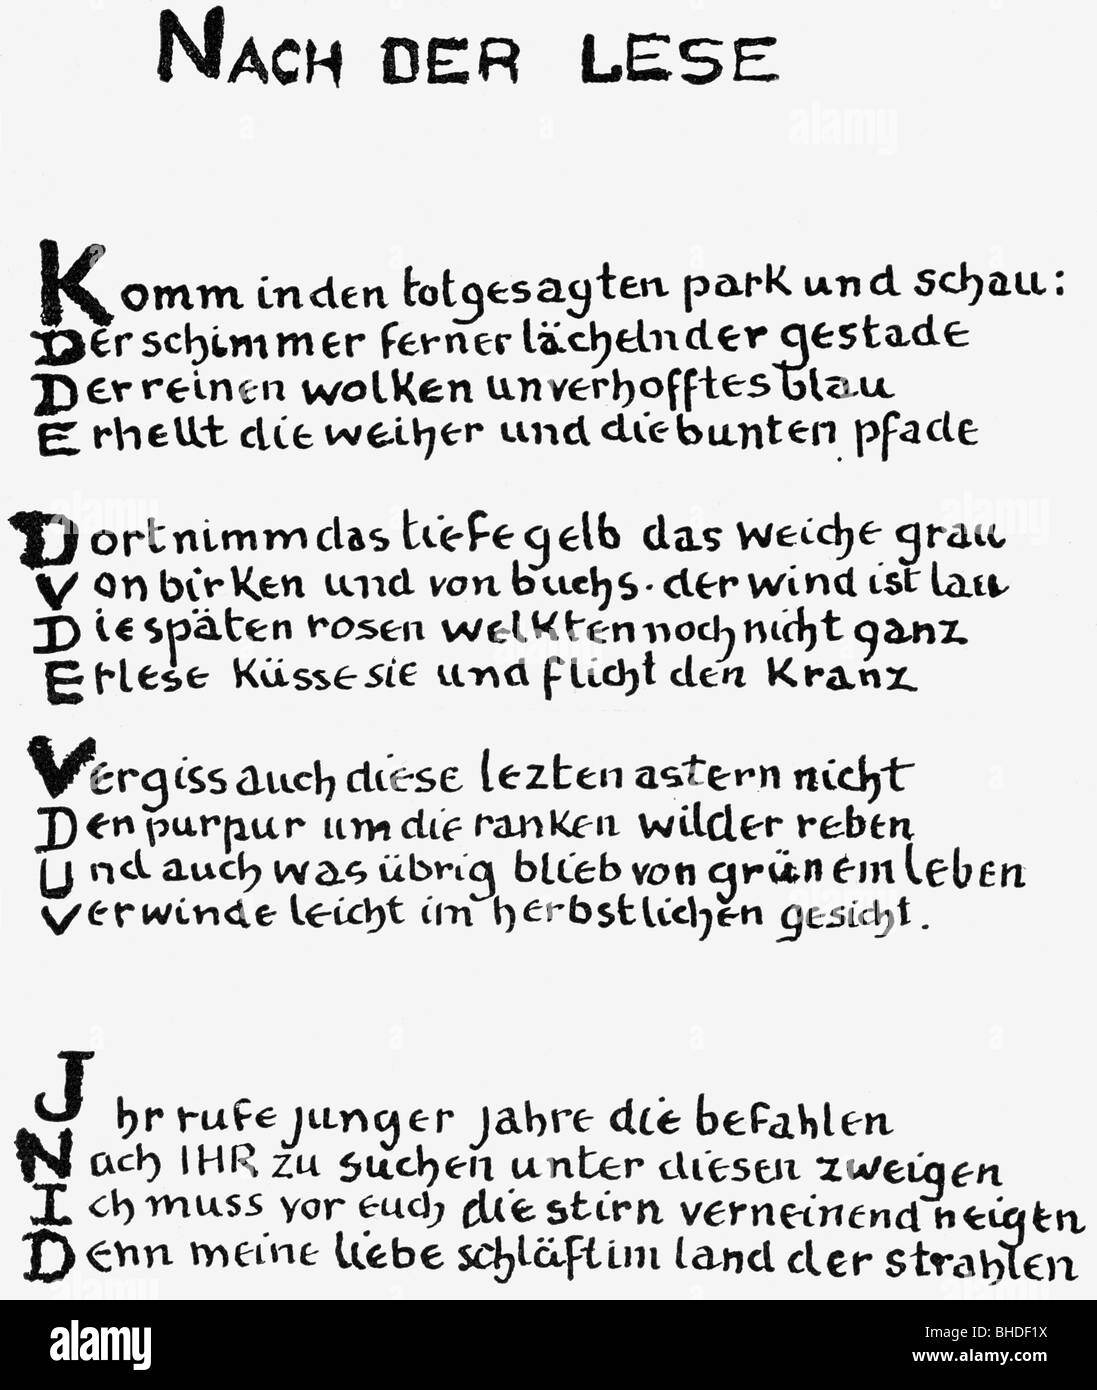 NACH DER LESE
Komm in den totgesagten park und schau:
Der schimmer ferner lächelnder gestade
Der reinen wolken unverhofftes blau
Erhellt die weiher und die bunten pfade
Dort nimm das tiefe gelb das weiche grau
Von birken und von buchs. der wind ist lau
Die späten rosen welkten noch nicht ganz
Erlese küsse sie und flicht den kranz
Vergiss auch diese lezten astern nicht
Den purpur um die ranken wilder reben
Und auch was übrig blieb von grünem leben
Verwinde leicht im herbstlichen gesicht.
Jhr rufe junger jahre die befahlen
Nach IHR zu suchen unter diesen zweigen
Ich muss vor euch die stirn verneinend neigen
Denn meine liebe schläft im land der strahlen
alamy
Image ID: BHDF1X
www.alamy.com